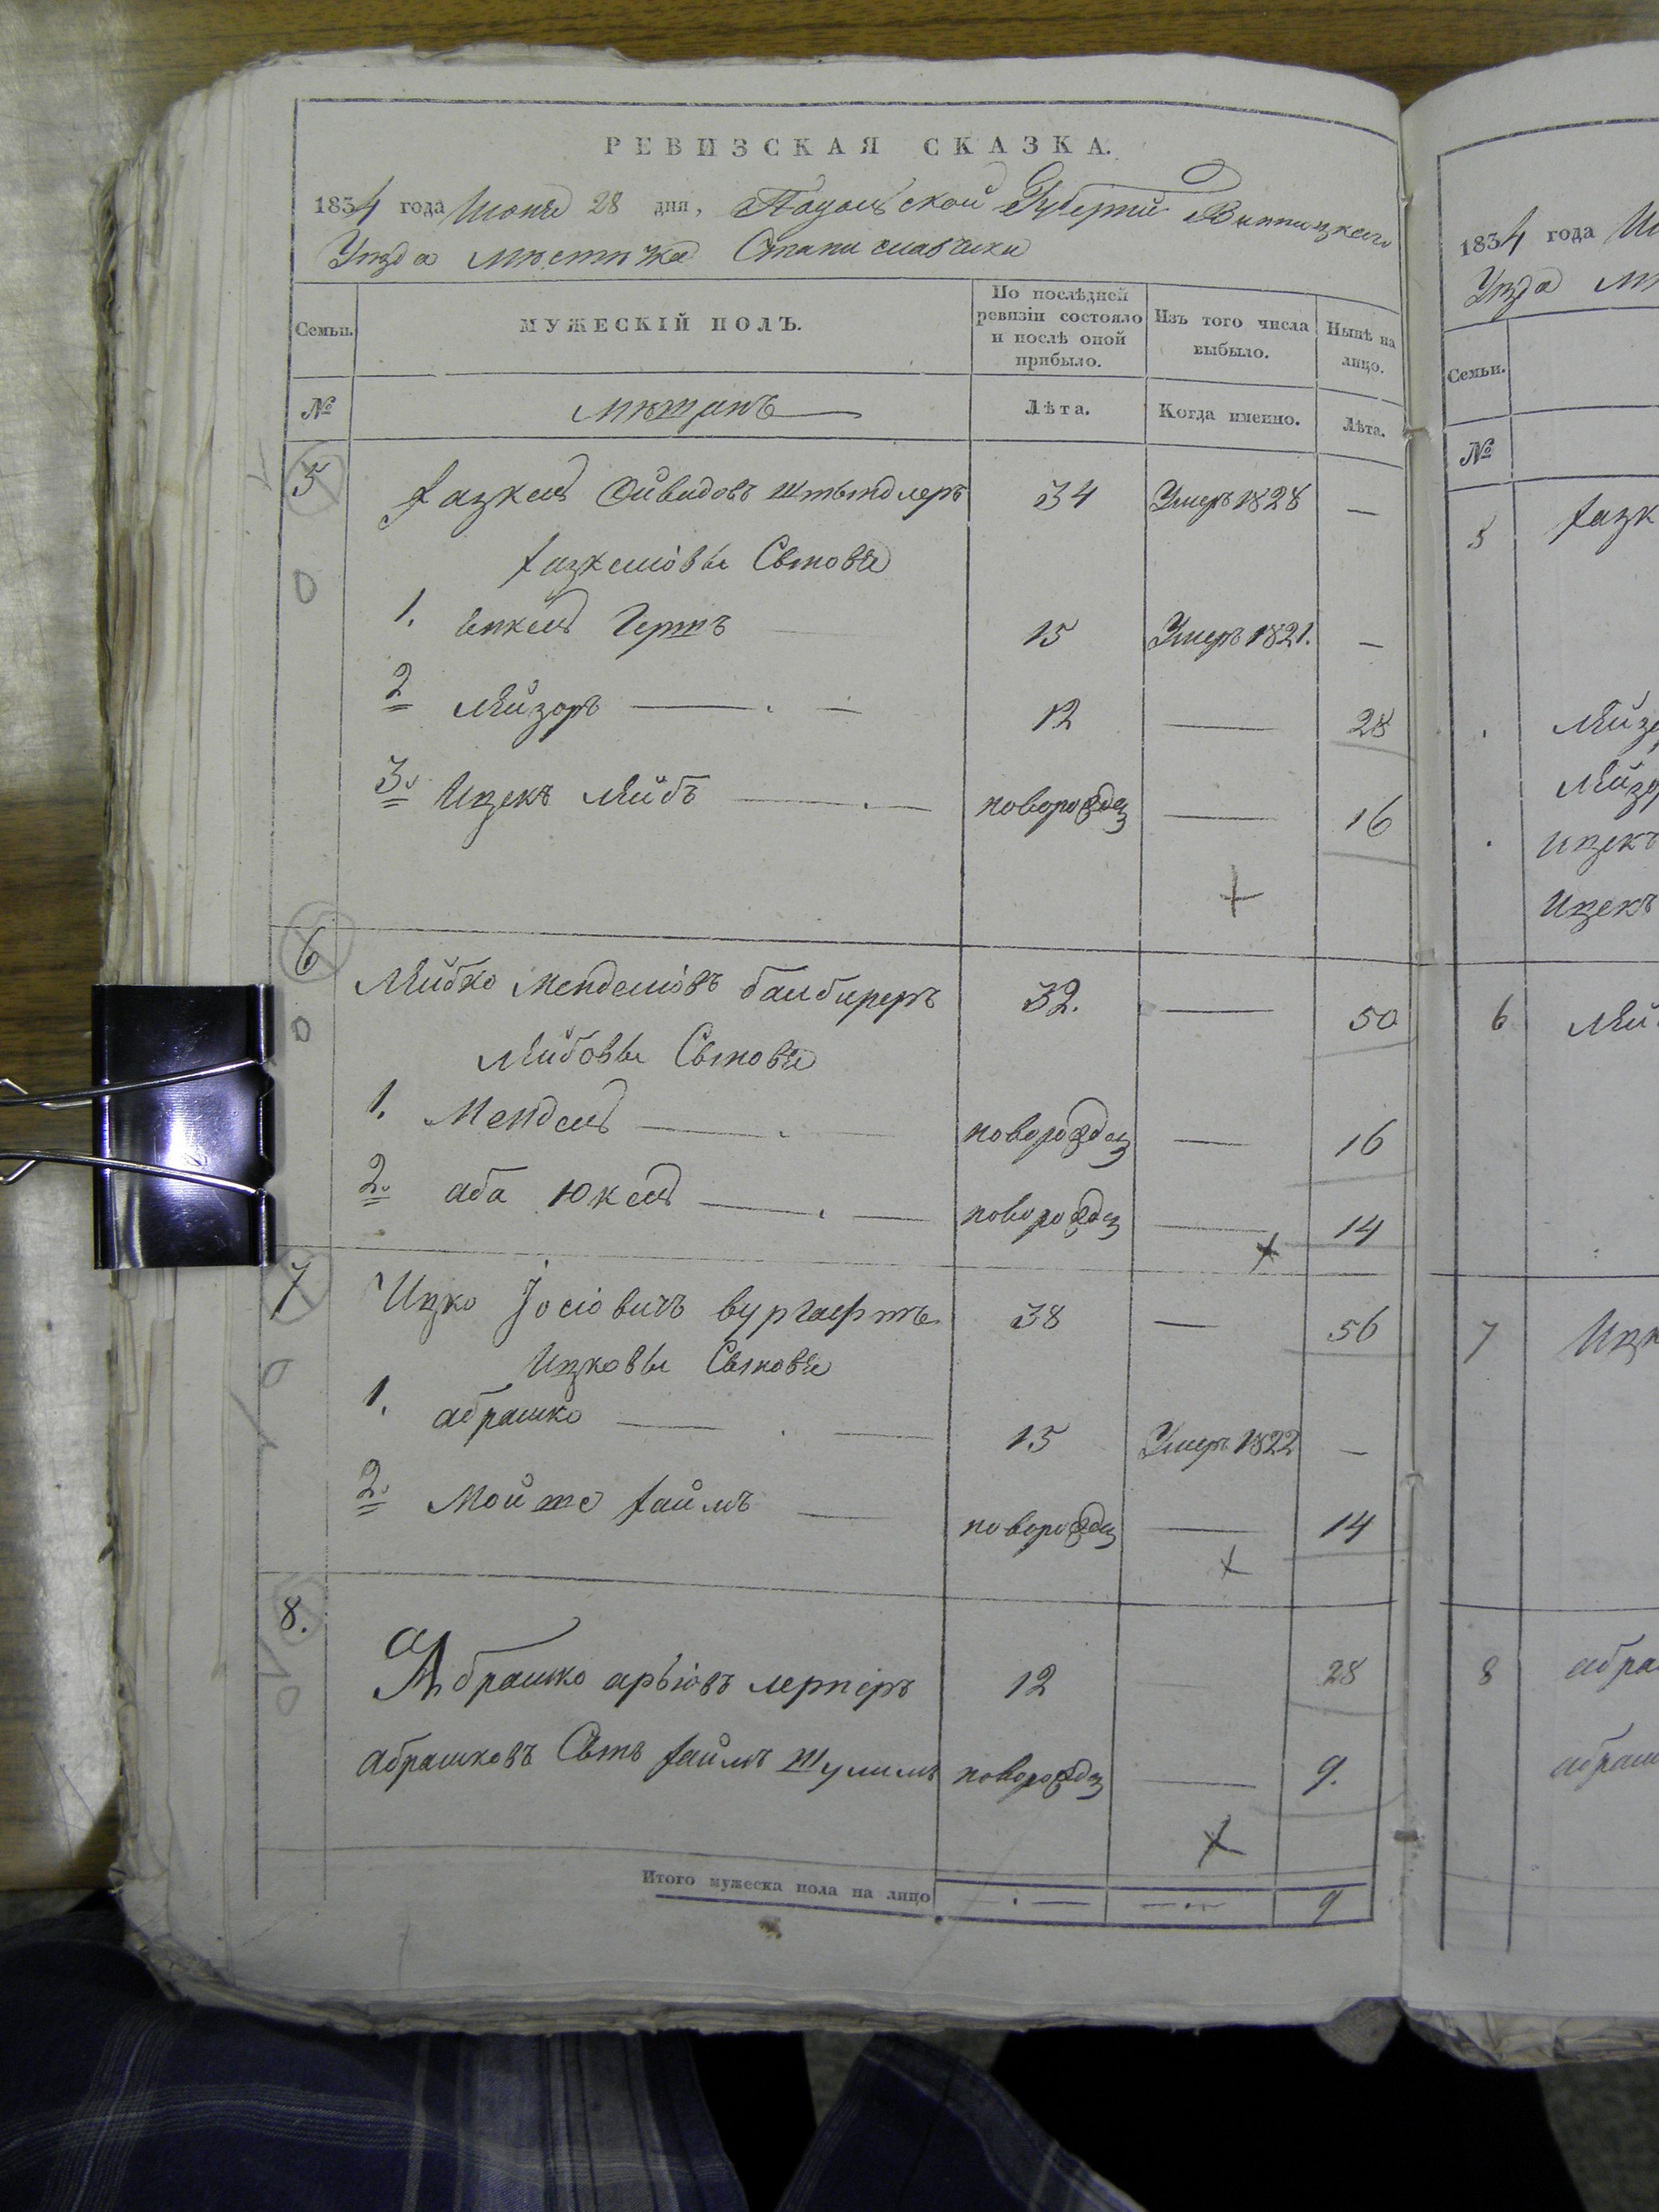 РЕВИЗСКАЯ СКАЗКА.
1834 года Июня 28 дня, Подольской Губерніи Винницкаго
Уезда мѣстечка Станиславчика
Семьи.
МУЖЕСКІЙ ПОЛЪ.
По послѣдней ревизіи состояло и послѣ оной прибыло.
Изъ того числа выбыло.
Нынѣ на лицо.
№
мѣщанъ
Лѣта.
Когда именно.
Лѣта.
5
34 Умеръ 1828 —
Сыновья
1. 15 Умеръ 1821. —
2 Лейзоръ — 12 — 28
3. Ицекъ Лейбъ — новорожд — 16
6
Лейбко Менделіовъ балбиреръ 32. — 50
Лейбовы Сыновья
1. Мендель — новорожд — 16
2. аба Юкель — новорожд — 14
7
Ицко Іосіовичъ вургафтъ 38 — 56
Ицковы Сыновья
1. абрашко — 15 Умеръ 1822 —
2. Мойше хаимъ — новорожд — 14
8.
Абрашко арьіовъ лернеръ 12 28
абрашковъ Сынъ хаимъ шулимъ новорожд — 9.
Итого мужеска пола на лицо — — 9
1834 года
Уезда
Семьи.
№
5
6
7
8